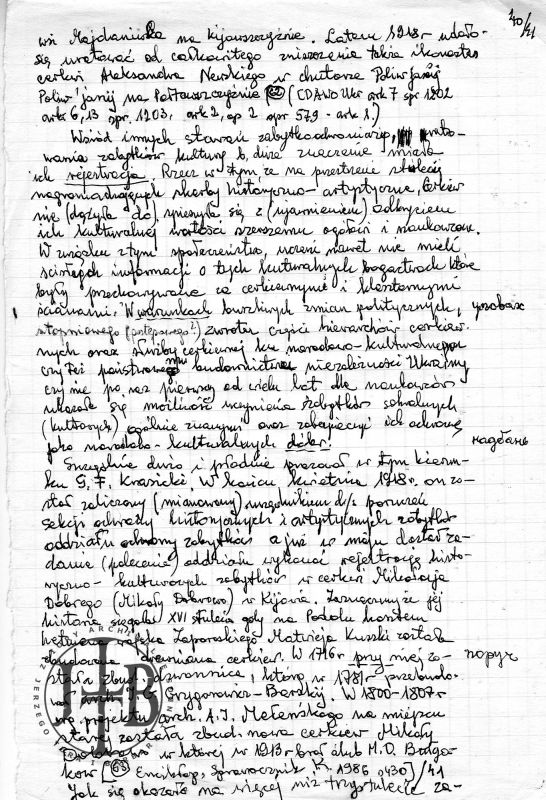 40/41
wsi Majdaniwka na Kijowszczyźnie. Latem 1918r udało-
się uratować od całkowitego zniszczenia także ikonostas
cerkwi Aleksandra Newskiego w chutorze Poliw'janij
Poliw'janij na Połtawszczyźnie (62) (CDAWO Ukr ark 7 spr 1202
ark 6, 13 spr. 1203, ark 2, op 2 spr 579 - ark 1.)
Wśród innych starań zabytkoochroniarzy, urato-
wania zabytków kultury, duże znaczenie miała
ich rejestracja. Rzecz w tym, że na przestrzeni stuleci
nagromadzających skarby historyczno-artystyczne, cerkiew
nie (dążyła do) spieszyła się z (ujawnieniem) odkryciem
ich kulturalnej wartości szerszemu ogółowi i naukowcom.
W związku z tym społeczeństwo, uczeni nawet nie mieli
ścisłych informacji o tych kulturalnych bogactwach które
były przechowywane za cerkiewnymi i klasztornymi
ścianami. W warunkach burzliwych zmian politycznych,
stopniowego (postępowego?) zwrotu części hierarchów cerkiew-
nych oraz służby cerkiewnej ku narodowo-kulturalnym
czy też państwowemu budownictwu niezależności Ukrainy
czy nie po raz pierwszy od wielu lat dla naukowców
ukazała się możliwość uczynienia zabytków sakralnych
(kultowych) ogólnie znanymi oraz zabezpieczyć ich ochronę
jako narodowo-kulturalnych dóbr! надбань
Szczególnie dużo i płodnie pracował w tym kierun-
ku G. F. Krasicki. W końcu kwietnia 1918r. on zo-
stał zaliczony (mianowany) urzędnikiem d/s poruczeń
sekcji ochrony historycznych i artystycznych zabytków
oddziału ochrony zabytków a już w maju dostał za-
danie (polecenie) oddziału wykonać rejestrację histo-
ryczno-kulturowych zabytków w cerkwi Mikołaja
Dobrego (Mikoły Dobrowo) w Kijowie. Zaznaczmy że jej
historia sięgała XVI stulecia gdy na Podolu kosztem
hetmana wojska Zaporoskiego Matwieja Kuszki została
zbudowana drewniana cerkiew. W 1716r przy niej zo- поруч
stała zbud. dzwonnica, którą w 1781r przebudo-
wał arch. I. G. Grygorowicz-Barskij. W 1800-1807r
wg projektu arch. A. I. Meleńskiego na miejscu
starej została zbud. nowa cerkiew Mikoły
w której w 1913r brał ślub M. O. Bułga-
kow [63 Encikłop. sprawocznik K. 1986 s 430) /41
Jak się okazało na więcej niż trzystulecie za-